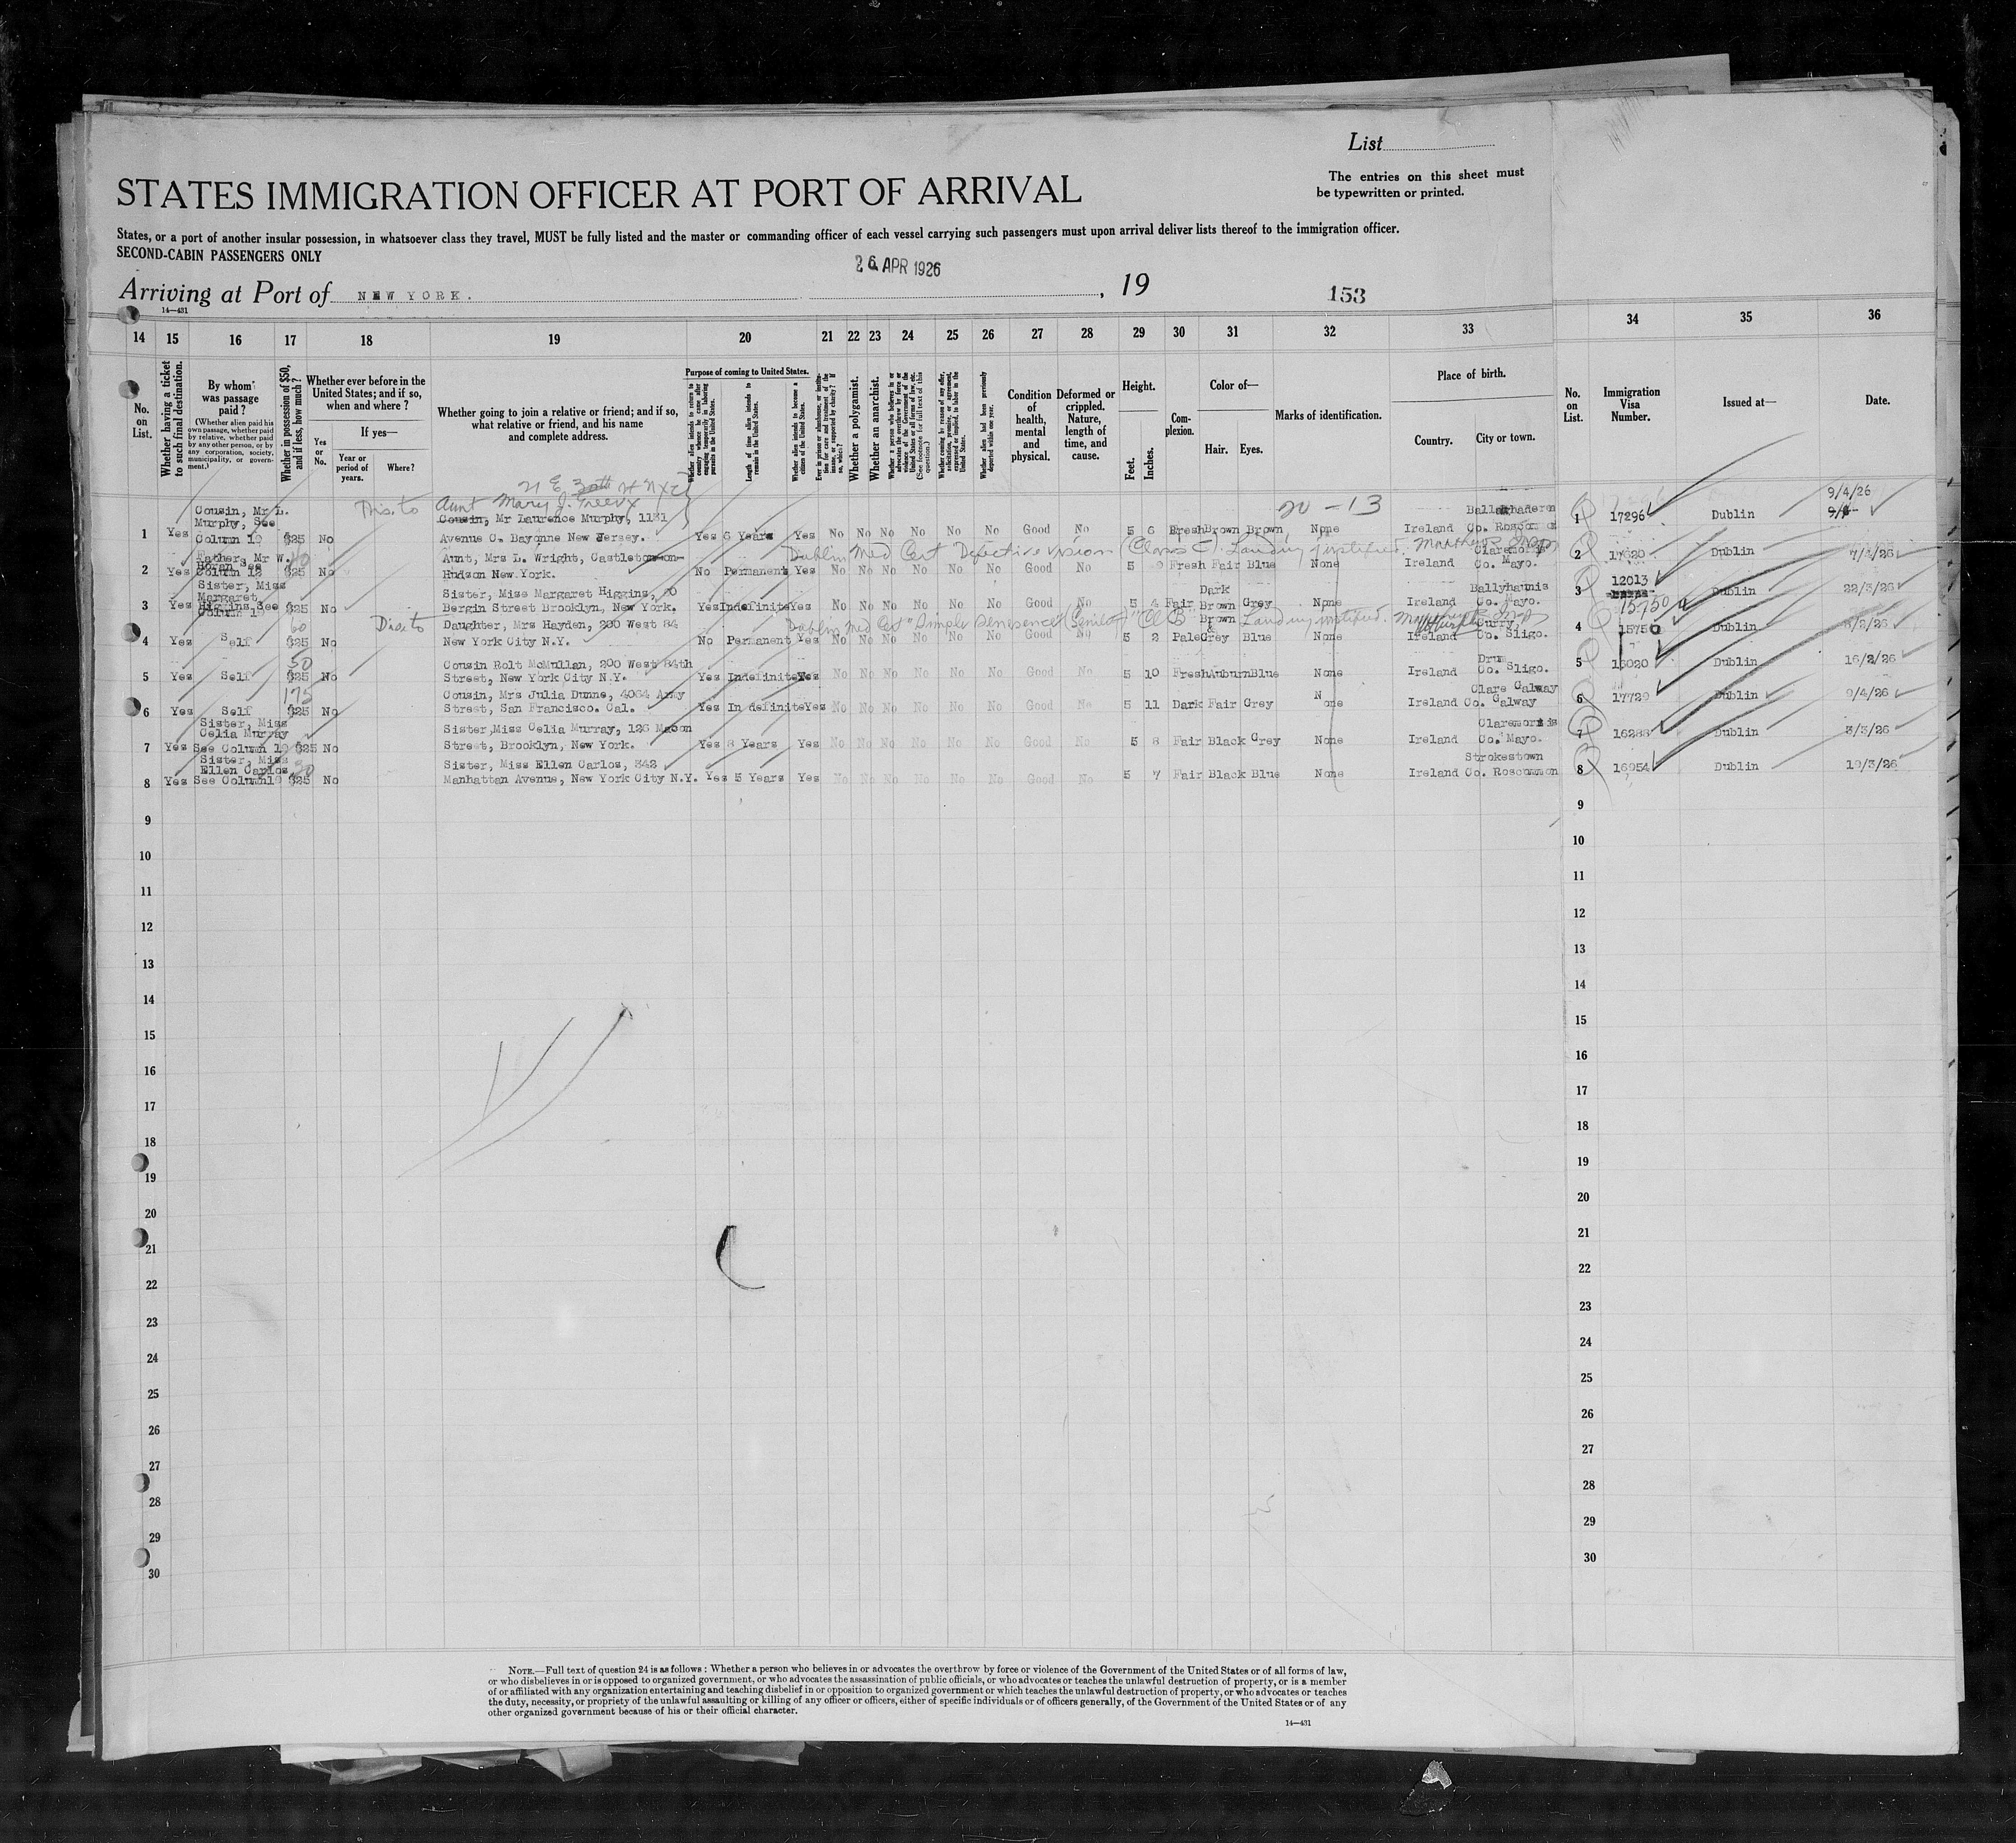 List
The entries on this sheet must
be typewritten or printed.
STATES IMMIGRATION OFFICER AT PORT OF ARRIVAL
States, or a port of another insular possession, in whatsoever class they travel, MUST be fully listed and the master or commanding officer of each vessel carrying such passengers must upon arrival deliver lists thereof to the immigration officer.
SECOND-CABIN PASSENGERS ONLY
26 APR 1926
Arriving at Port of NEW YORK. , 19
153
14—431
14 15 16 17 18 19 20 21 22 23 24 25 26 27 28 29 30 31 32 33 34 35 36
No. on List.
Whether having a ticket to such final destination.
By whom was passage paid?
(Whether alien paid his own passage, whether paid by relative, whether paid by any other person, or by any corporation, society, municipality, or government.)
Whether in possession of $50, and if less, how much?
Whether ever before in the United States; and if so, when and where?
Yes or No.
If yes—
Year or period of years.
Where?
Whether going to join a relative or friend; and if so, what relative or friend, and his name and complete address.
Purpose of coming to United States.
Whether alien intends to return to country whence he came after engaging temporarily in laboring pursuits in the United States.
Length of time alien intends to remain in the United States.
Whether alien intends to become a citizen of the United States.
Ever in prison or almshouse, or institution for care and treatment of the insane, or supported by charity? If so, which?
Whether a polygamist.
Whether an anarchist.
Whether a person who believes in or advocates the overthrow by force or violence of the Government of the United States or all forms of law, etc. (See footnote for full text of this question.)
Whether coming by reason of any offer, solicitation, promise, or agreement, expressed or implied, to labor in the United States.
Whether alien had been previously deported within one year.
Condition of health, mental and physical.
Deformed or crippled. Nature, length of time, and cause.
Height.
Feet. Inches.
Complexion.
Color of—
Hair. Eyes.
Marks of identification.
Place of birth.
Country. City or town.
No. on List.
Immigration Visa Number.
Issued at—
Date.
Disto Aunt Mary J.
20-13
1 Yes Cousin, Mr L. Murphy, See Column 19 $25 No Cousin, Mr Laurence Murphy, 1131 Avenue C. Bayonne New Jersey. Yes 6 Years Yes No No No No No No Good No 5 6 Fresh Brown Brown None Ireland Ballaghaderen Co. Roscommon 1 17296 Dublin 9/4/26
Dublin Med Cert Defective vision (Class C). Landing justified.
2 Yes Father, Mr W. Horan See Column 12 $25 No Aunt, Mrs L. Wright, Castleton-on-Hudson New York. No Permanent Yes No No No No No No Good No 5 Fresh Fair Blue None Ireland Claremorris Co. Mayo. 2 17620 Dublin 7/4/26
3 Yes Sister, Miss Margaret Higgins See Column 19 $25 No Sister, Miss Margaret Higgins, 90 Bergin Street Brooklyn, New York. Yes Indefinite Yes No No No No No No Good No 5 4 Fair Dark Brown Grey None Ireland Ballyhaunis Co. Mayo. 3 12013 Dublin 22/3/26
15750
Disto
Dublin Med Cert "Simple Senescence" (Senility) "Cl B" Landing justified.
4 Yes Self 60 $25 No Daughter, Mrs Hayden, 200 West 84 New York City N.Y. No Permanent Yes No No No No No No Good No 5 2 Pale Brown & Grey Blue None Ireland Curry, Co. Sligo. 4 15750 Dublin
5 Yes Self 50 $25 No Cousin Robt McMullan, 200 West 84th Street, New York City N.Y. Yes Indefinite Yes No No No No No No Good No 5 10 Fresh Auburn Blue None Ireland Drum Co. Sligo. 5 16020 Dublin 16/2/26
6 Yes Self 175 $25 No Cousin, Mrs Julia Dunne, 4064 Army Street, San Francisco. Cal. Yes Indefinite Yes No No No No No No Good No 5 11 Dark Fair Grey None Ireland Clare Galway Co. Galway 6 17729 Dublin 9/4/26
7 Yes Sister, Miss Celia Murray See Column 19 $25 No Sister, Miss Celia Murray, 126 Macon Street, Brooklyn, New York. Yes 8 Years Yes No No No No No No Good No 5 8 Fair Black Grey None Ireland Claremorris Co. Mayo. 7 16288 Dublin 3/3/26
8 Yes Sister, Miss Ellen Carlos See Column 19 $25 No Sister, Miss Ellen Carlos, 342 Manhattan Avenue, New York City N.Y. Yes 5 Years Yes No No No No No No Good No 5 7 Fair Black Blue None Ireland Strokestown Co. Roscommon 8 16954 Dublin 19/3/26
9 9
10 10
11 11
12 12
13 13
14 14
15 15
16 16
17 17
18 18
19 19
20 20
21 21
22 22
23 23
24 24
25 25
26 26
27 27
28 28
29 29
30 30
NOTE.—Full text of question 24 is as follows: Whether a person who believes in or advocates the overthrow by force or violence of the Government of the United States or of all forms of law,
or who disbelieves in or is opposed to organized government, or who advocates the assassination of public officials, or who advocates or teaches the unlawful destruction of property, or is a member
of or affiliated with any organization entertaining and teaching disbelief in or opposition to organized government or which teaches the unlawful destruction of property, or who advocates or teaches
the duty, necessity, or propriety of the unlawful assaulting or killing of any officer or officers, either of specific individuals or of officers generally, of the Government of the United States or of any
other organized government because of his or their official character.
14—431